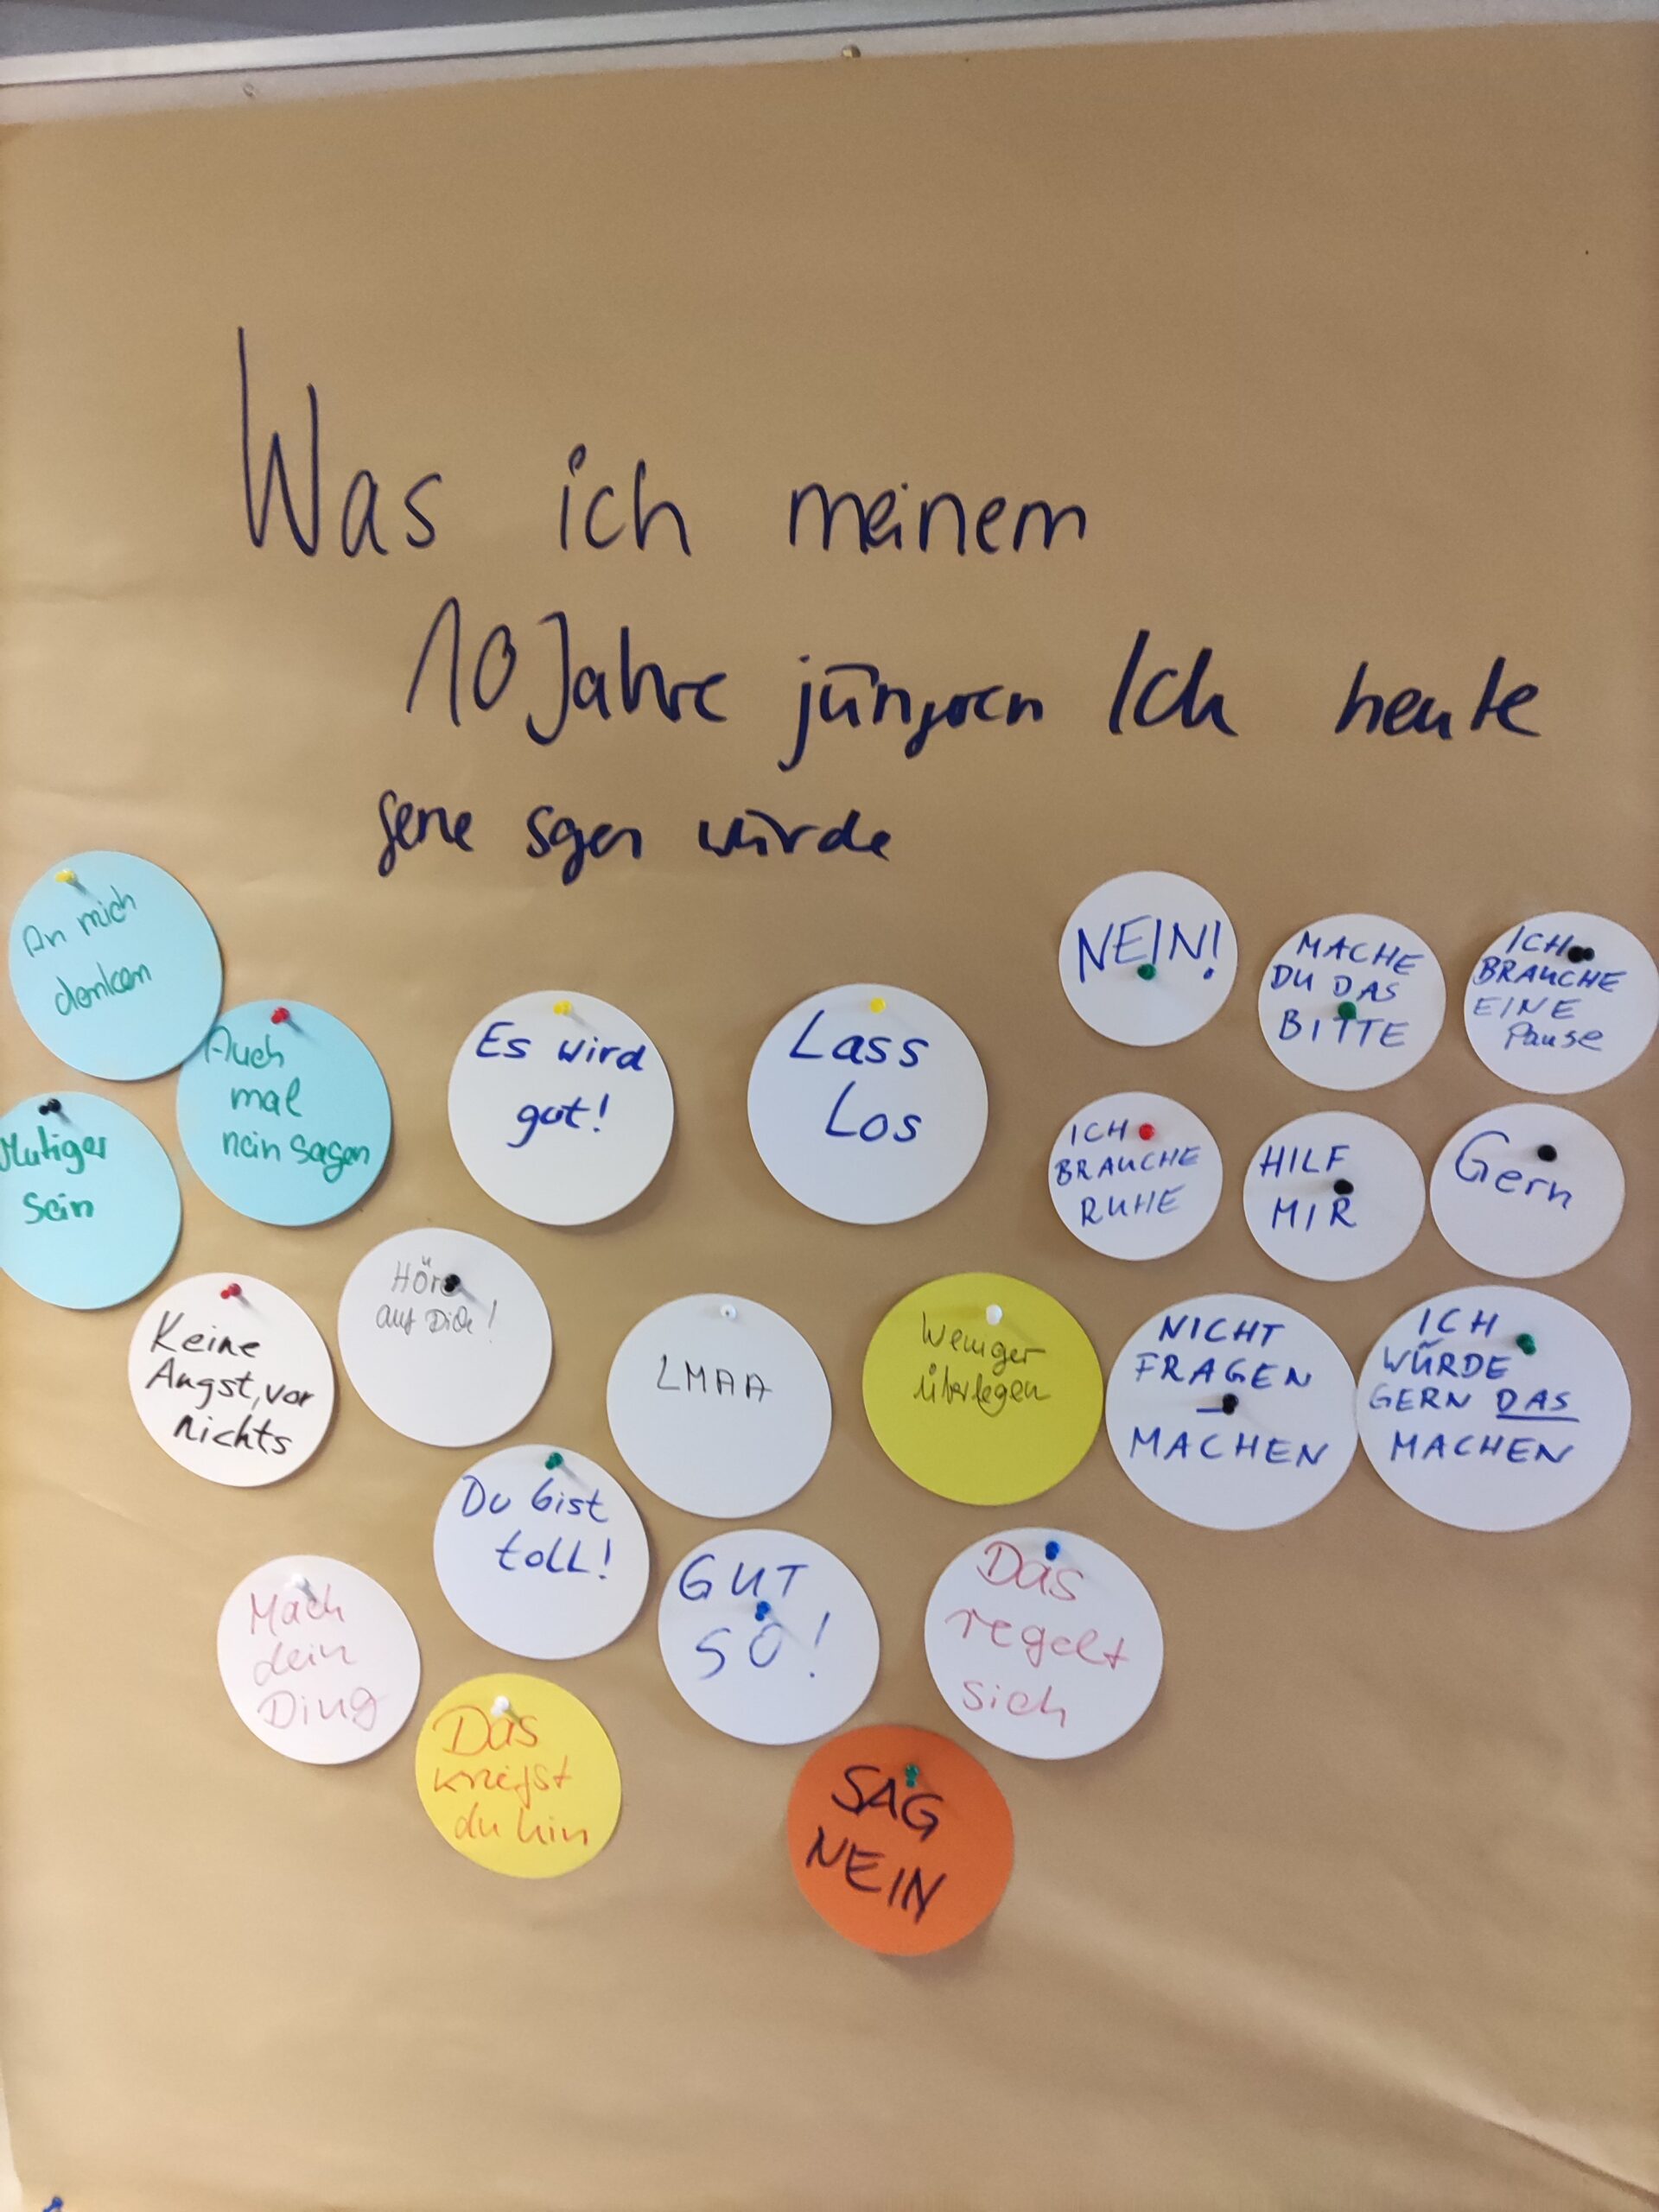 Was ich meinem
10 Jahre jüngren Ich heute
gerne sgen würde
An mich
denken
Auch
mal
nein sagen
Mutiger
sein
Es wird
gut!
Lass
Los
NEIN!
MACHE
DU DAS
BITTE
ICH
BRAUCHE
EINE
Pause
ICH
BRAUCHE
RUHE
HILF
MIR
Gern
Keine
Angst, vor
nichts
Höre
auf Dich!
LMAA
Weniger
überlegen
NICHT
FRAGEN
–
MACHEN
ICH
WÜRDE
GERN DAS
MACHEN
Du bist
toll!
Mach
dein
Ding
GUT
SO!
Das
regelt
sich
Das
kriegst
du hin
SAG
NEIN